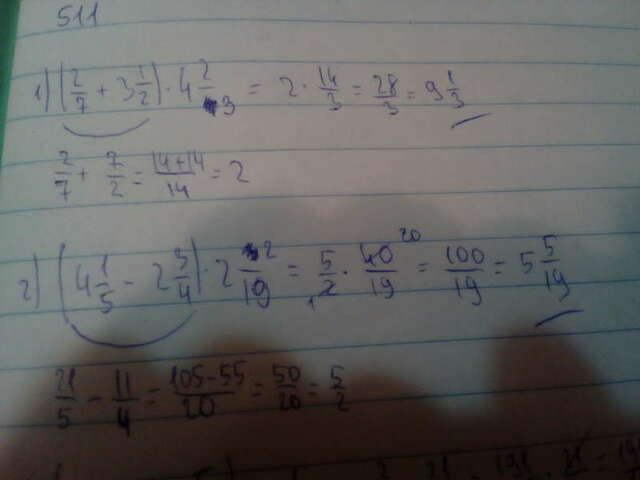 511
1) (2/7 + 3 1/2) · 4 2/3 = 2 · 14/3 = 28/3 = 9 1/3
2/7 + 7/2 = 14+14/14 = 2
2) (4 1/5 - 2 3/4) · 2 2/19 = 5/2 · 40/19 20 = 100/19 = 5 5/19
21/5 - 11/4 = 105-55/20 = 50/20 = 5/2